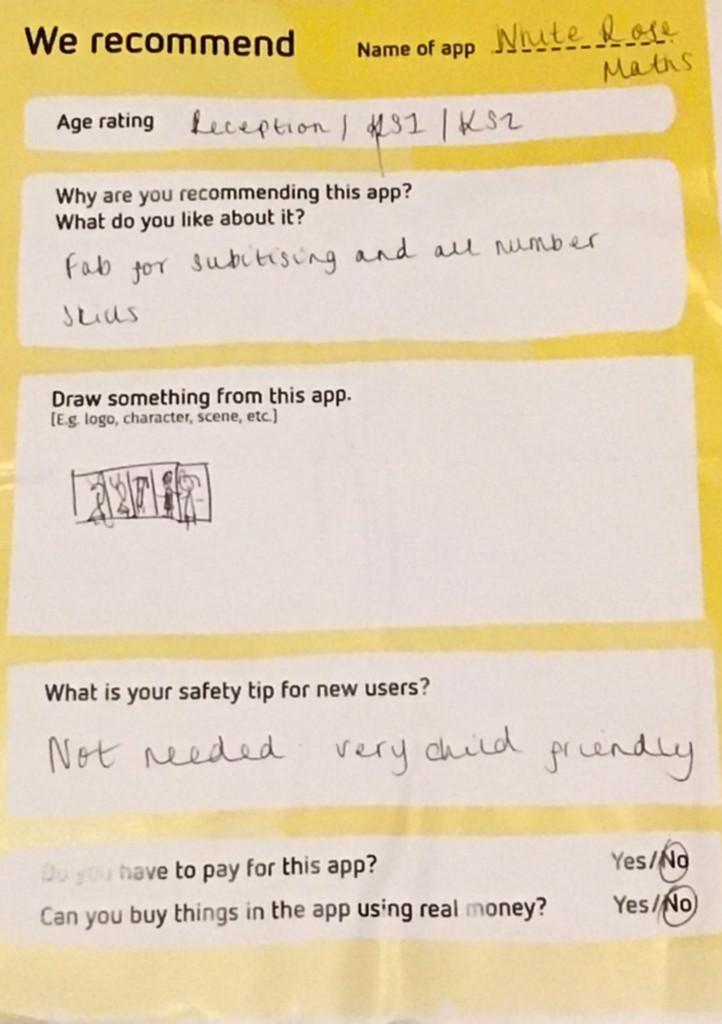 We recommend Name of app White Rose
Maths
Age rating Reception / KS1 / KS2
Why are you recommending this app?
What do you like about it?
Fab for subitising and all number
skills
Draw something from this app.
[E.g. logo, character, scene, etc.]
What is your safety tip for new users?
Not needed very child friendly
Do you have to pay for this app? Yes/No
Can you buy things in the app using real money? Yes/No